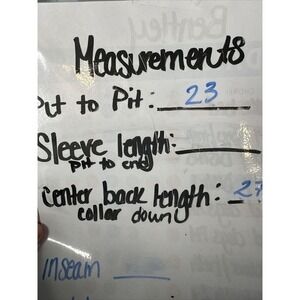 Bentley
Measurements
Pit to Pit: 23
Sleeve length:
pit to end
center back length: 27
collar down
inseam